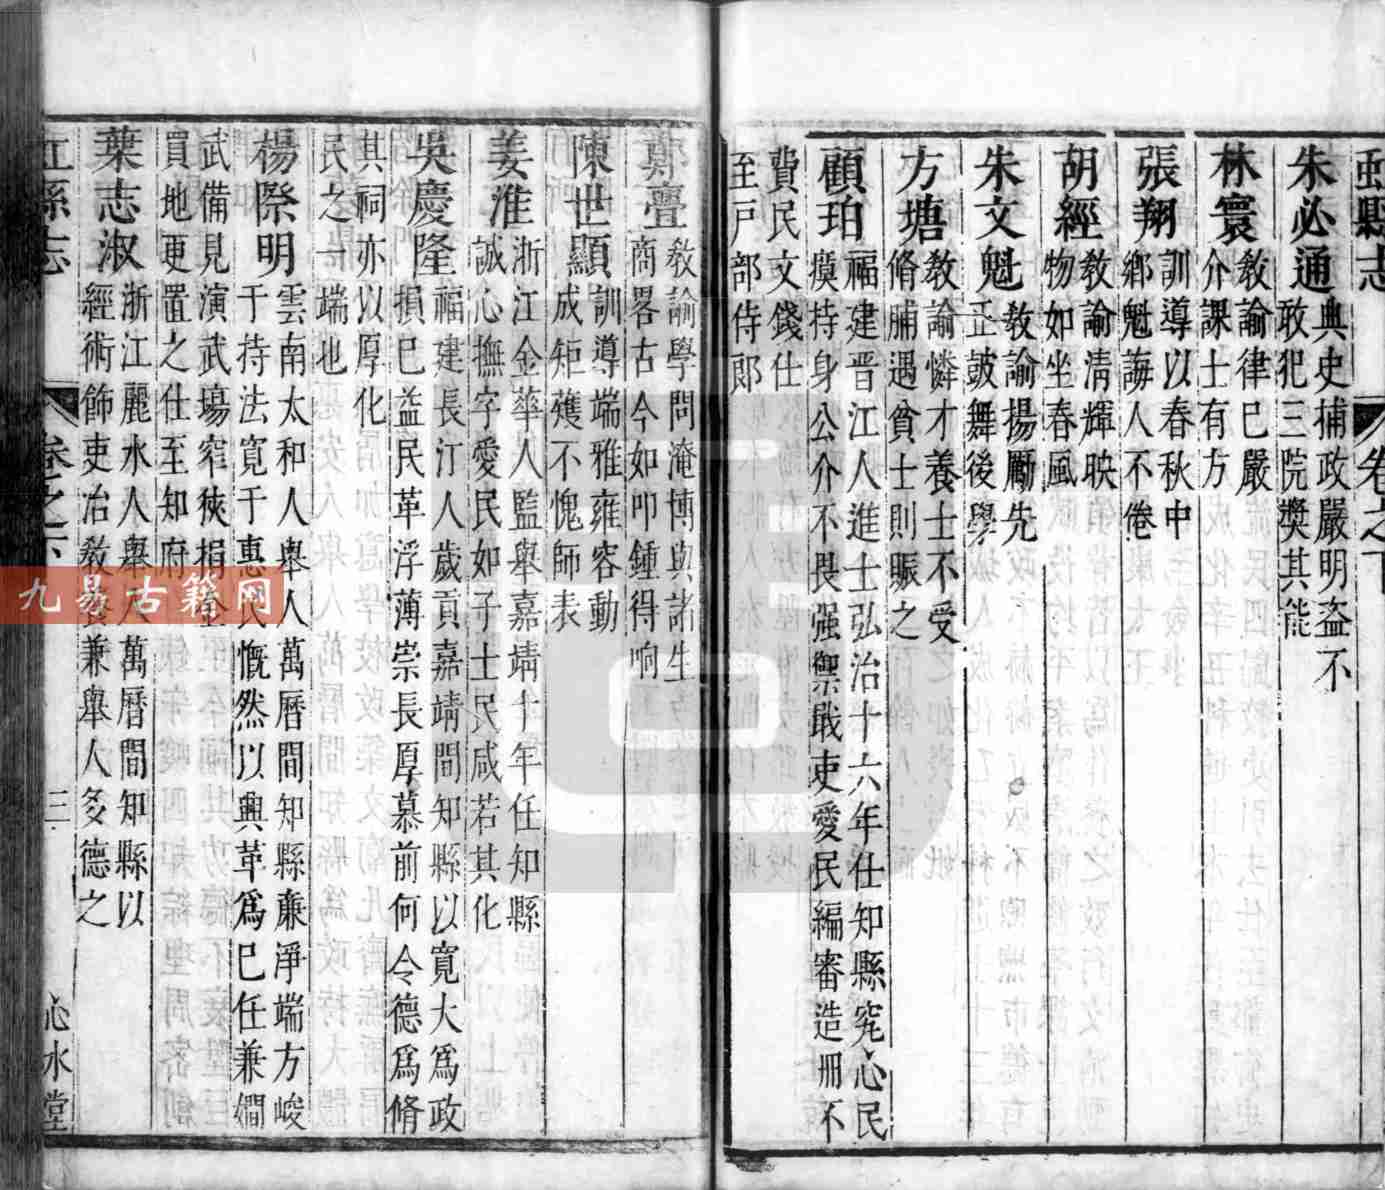 虹縣志
卷之下
朱必通
典史捕政嚴明盜不
敢犯三院奬其能
林寰
敎諭律已嚴
介課士有方
張翔
訓導以春秋中
鄉魁誨人不倦
胡經
敎諭清輝映
物如坐春風
朱文魁
敎諭揚厲先
正鼓舞後學
方塘
敎諭憐才養士不受
脩脯遇貧士則賑之
顧珀
福建晋江人進士弘治十六年任知縣究心民
瘼持身公介不畏强禦戢吏愛民編審造冊不
費民文錢仕
至戶部侍郎
鄭疊
敎諭學問淹博與諸生
商畧古今如叩鍾得响
陳世顯
訓導端雅雍容動
成矩矱不愧師表
姜淮
浙江金華人監舉嘉靖十年任知縣
誠心撫字愛民如子士民咸若其化
吳慶隆
福建長汀人歲貢嘉靖間知縣以寬大爲政
損已益民革浮薄崇長厚慕前何令德爲脩
其祠亦以厚化
民之一端也
楊際明
雲南太和人舉人萬曆間知縣亷淨端方峻
于持法寬于惠民慨然以興革爲已任兼嫺
武備見演武塲窄狹捐金
買地更置之仕至知府
葉志淑
浙江麗水人舉人萬曆間知縣以
經術飾吏治敎養兼舉人多德之
虹縣志
卷之下
三
心水堂
九易古籍网